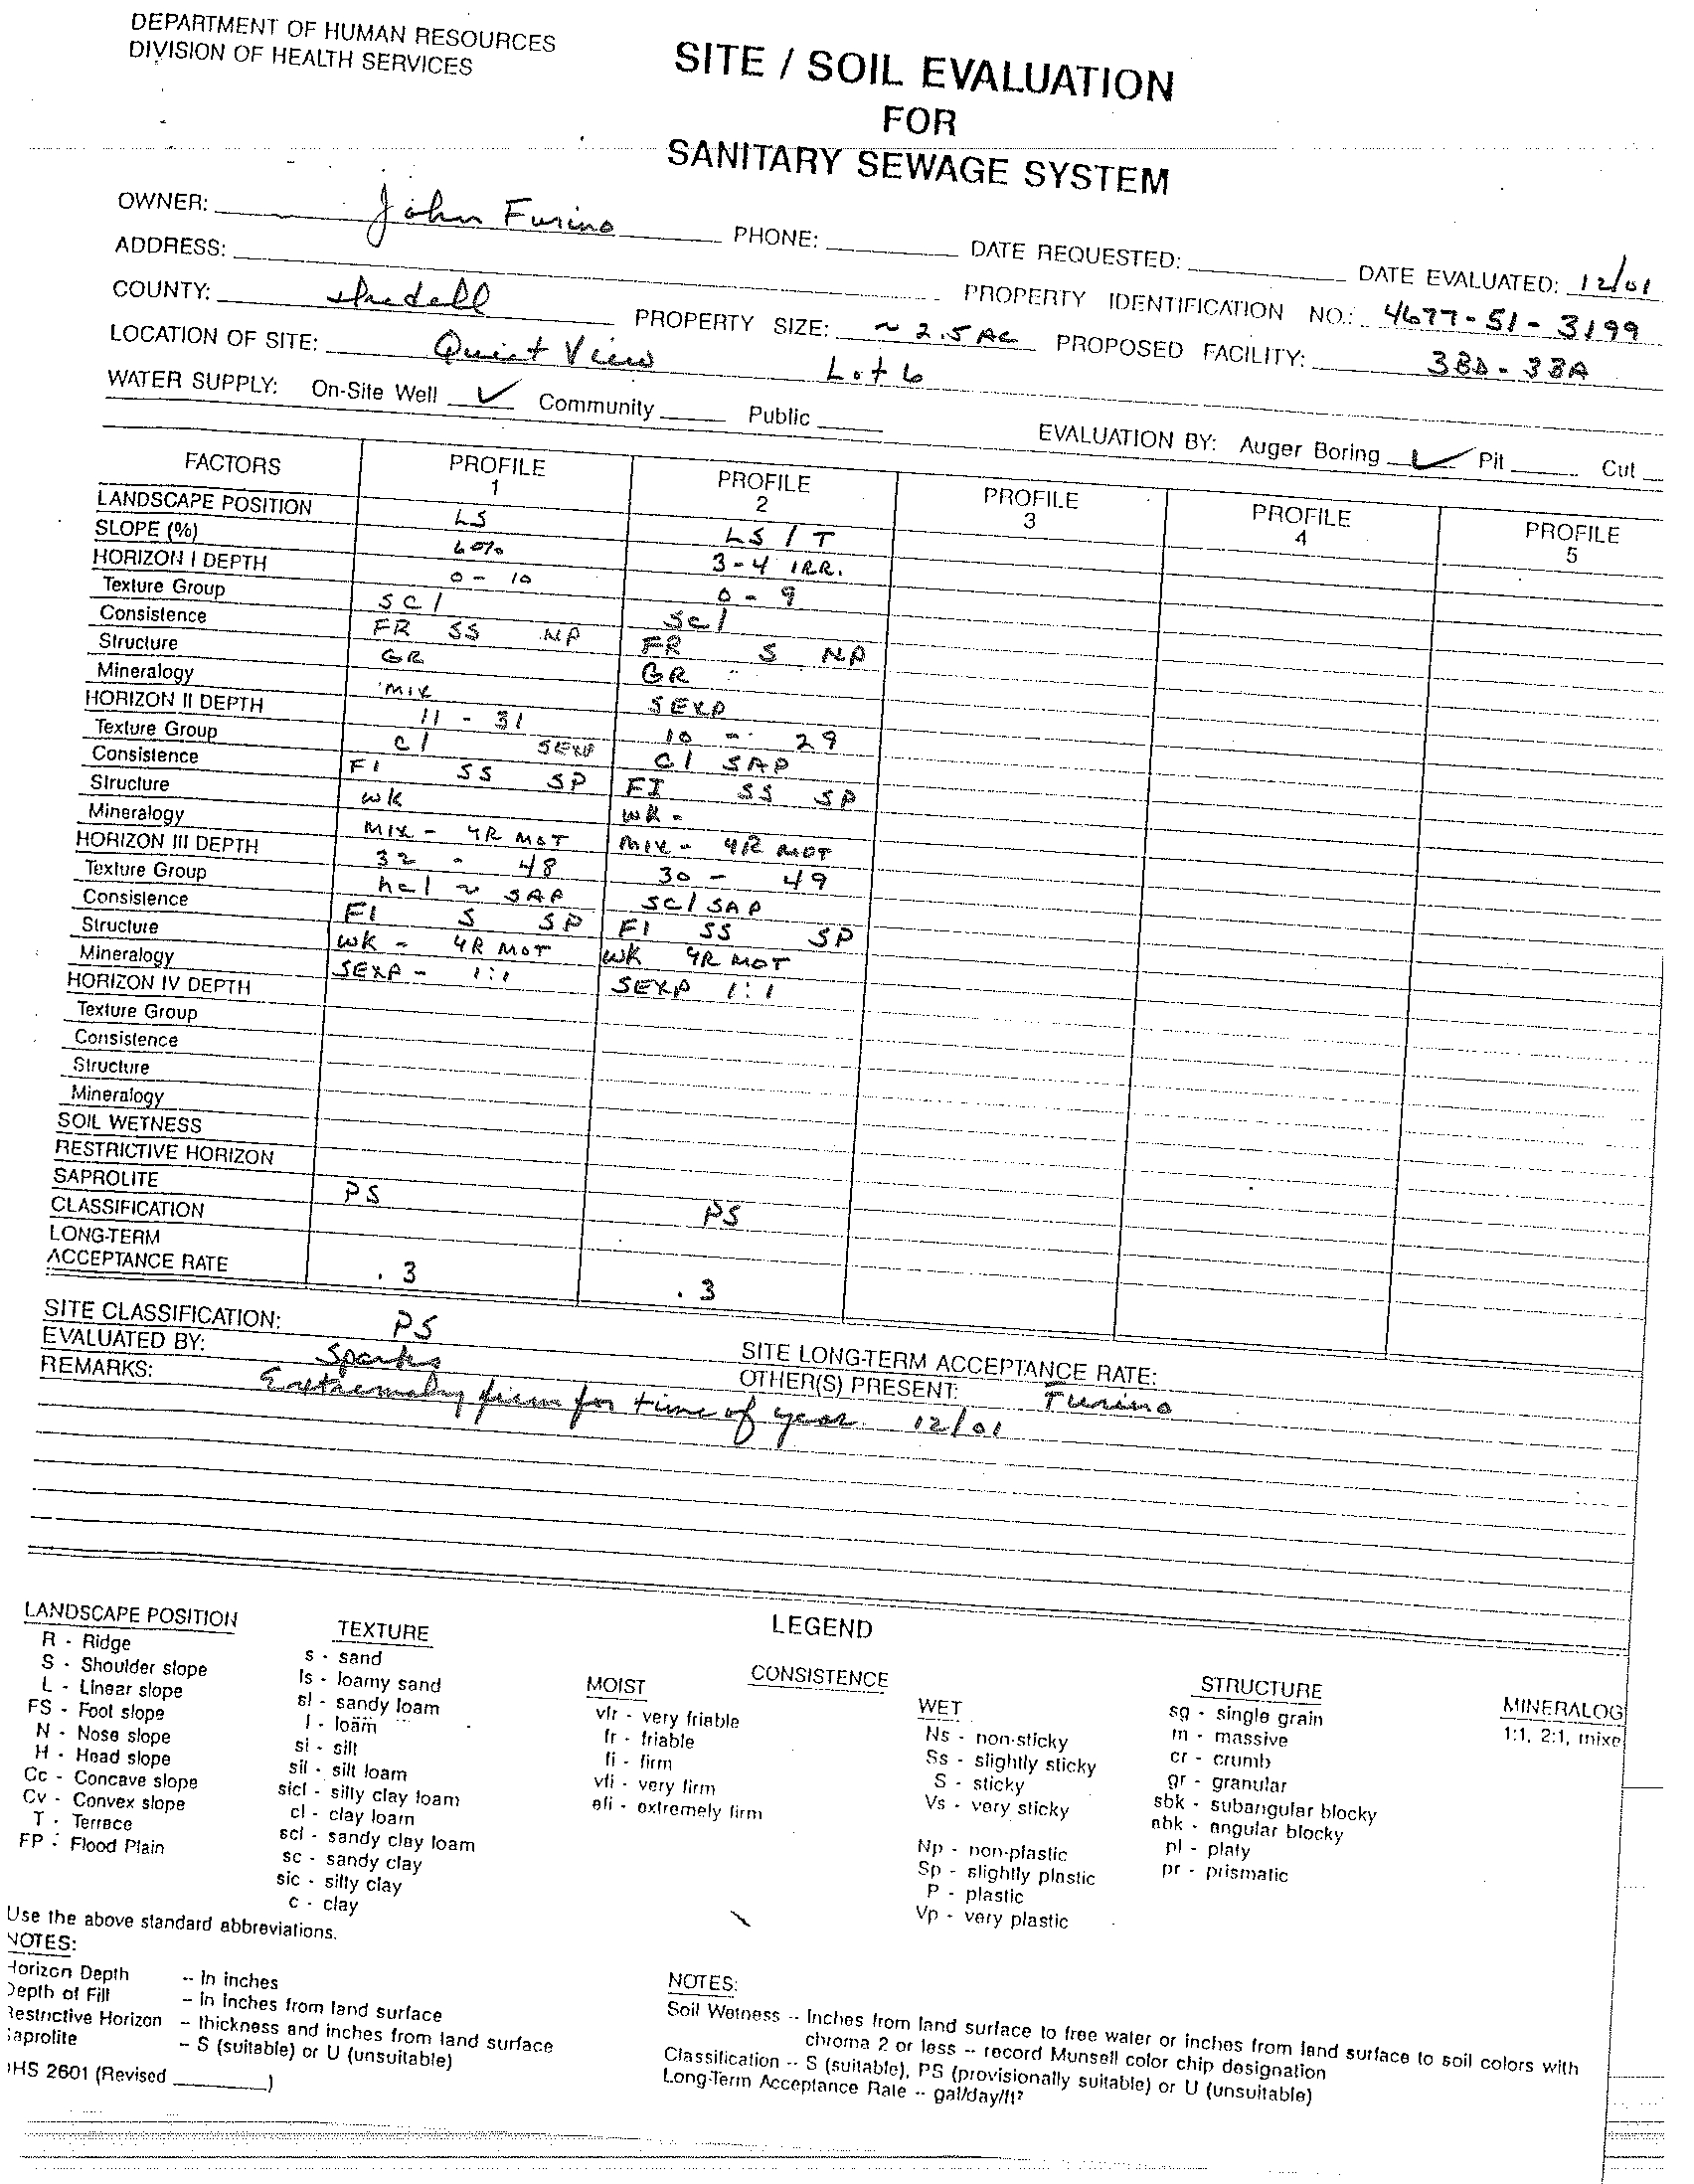 DEPARTMENT OF HUMAN RESOURCES
DIVISION OF HEALTH SERVICES
SITE / SOIL EVALUATION
FOR
SANITARY SEWAGE SYSTEM
OWNER: John Furino PHONE: DATE REQUESTED: DATE EVALUATED: 12/01
ADDRESS: PROPERTY IDENTIFICATION NO.: 4677-51-3199
COUNTY: Iredell PROPERTY SIZE: ~ 2.5 AC PROPOSED FACILITY: 3BD - 3BA
LOCATION OF SITE: Quiet View Lot 6
WATER SUPPLY: On-Site Well ✓ Community Public
EVALUATION BY: Auger Boring ✓ Pit Cut
FACTORS PROFILE 1 PROFILE 2 PROFILE 3 PROFILE 4 PROFILE 5
LANDSCAPE POSITION LS LS / T
SLOPE (%) 6% 3-4 IRR.
HORIZON I DEPTH 0 - 10 0 - 9
Texture Group scl scl
Consistence FR SS NP FR S NP
Structure GR GR
Mineralogy MIX SEXP
HORIZON II DEPTH 11 - 31 10 - 29
Texture Group cl SEXP cl SAP
Consistence FI SS SP FI SS SP
Structure WK WK -
Mineralogy MIX - YR MOT MIX - YR MOT
HORIZON III DEPTH 32 - 48 30 - 49
Texture Group hcl ~ SAP scl SAP
Consistence FI S SP FI SS SP
Structure WK - YR MOT WK YR MOT
Mineralogy SEXP - 1:1 SEXP 1:1
HORIZON IV DEPTH
Texture Group
Consistence
Structure
Mineralogy
SOIL WETNESS
RESTRICTIVE HORIZON
SAPROLITE
CLASSIFICATION PS PS
LONG-TERM
ACCEPTANCE RATE .3 .3
SITE CLASSIFICATION: PS SITE LONG-TERM ACCEPTANCE RATE:
EVALUATED BY: Sparks OTHER(S) PRESENT: Furino
REMARKS: Extremely firm for time of year 12/01
LEGEND
LANDSCAPE POSITION
R - Ridge
S - Shoulder slope
L - Linear slope
FS - Foot slope
N - Nose slope
H - Head slope
Cc - Concave slope
Cv - Convex slope
T - Terrace
FP - Flood Plain
TEXTURE
s - sand
ls - loamy sand
sl - sandy loam
l - loam
si - silt
sil - silt loam
sicl - silty clay loam
cl - clay loam
scl - sandy clay loam
sc - sandy clay
sic - silty clay
c - clay
CONSISTENCE
MOIST
vfr - very friable
fr - friable
fi - firm
vfi - very firm
efi - extremely firm
WET
Ns - non-sticky
Ss - slightly sticky
S - sticky
Vs - very sticky
Np - non-plastic
Sp - slightly plastic
P - plastic
Vp - very plastic
STRUCTURE
sg - single grain
m - massive
cr - crumb
gr - granular
sbk - subangular blocky
abk - angular blocky
pl - platy
pr - prismatic
MINERALOG
1:1, 2:1, mixe
Use the above standard abbreviations.
NOTES:
Horizon Depth -- In inches
Depth of Fill -- in inches from land surface
Restrictive Horizon -- thickness and inches from land surface
Saprolite -- S (suitable) or U (unsuitable)
DHS 2601 (Revised )
NOTES:
Soil Wetness -- Inches from land surface to free water or inches from land surface to soil colors with
chroma 2 or less -- record Munsell color chip designation
Classification -- S (suitable), PS (provisionally suitable) or U (unsuitable)
Long-Term Acceptance Rate -- gal/day/ft²